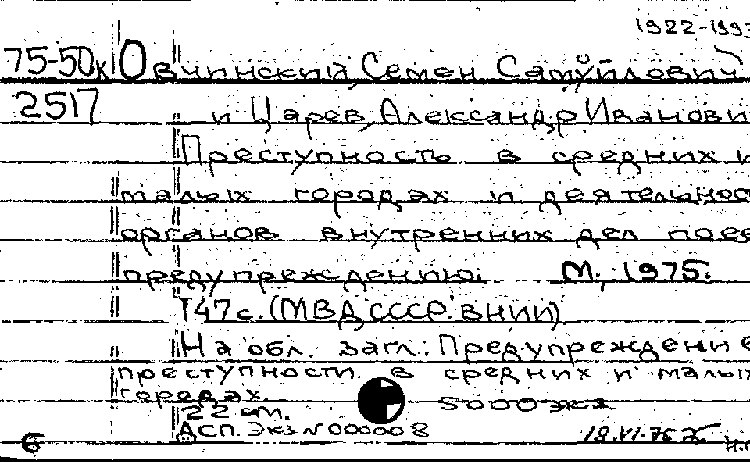 1922-199
75-50к Овчинский, Семен Самуйлович
2517 и Царев, Александр Иванови
Преступность в средних и
малых городах и деятельнос
органов внутренних дел по ее
предупреждению. М., 1975.
147 с. (МВД СССР. ВНИИ)
На обл. загл.: Предупреждение
преступности в средних и малых
городах.
22 см. 5000 экз
АСП. Экз N 000008 18.VI.76
6